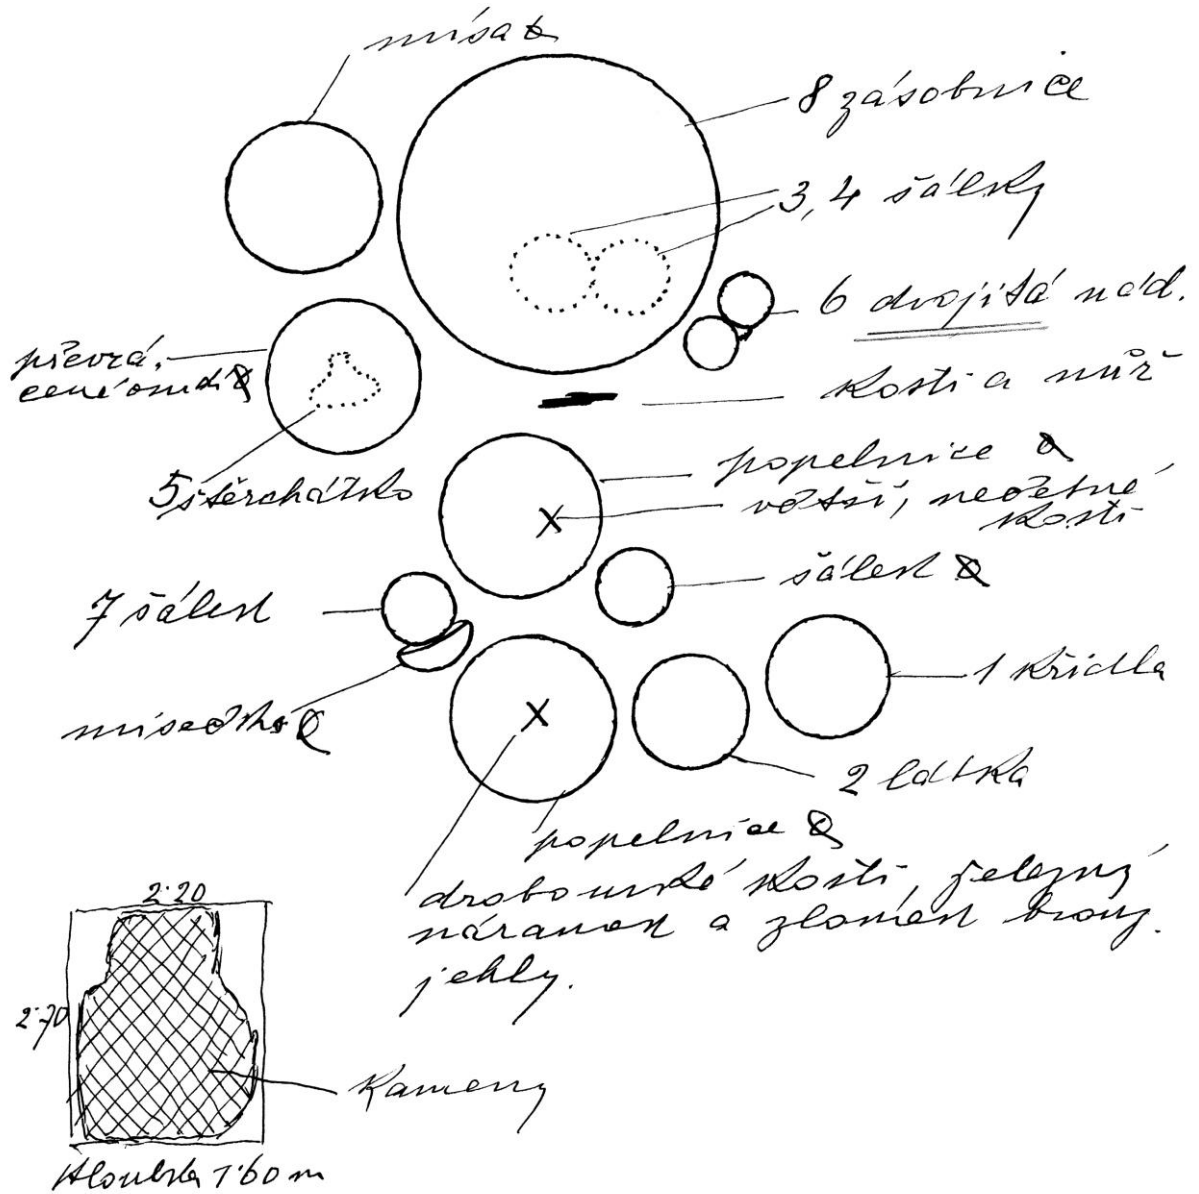 mísa
8 zásobnice
3,4 šálky
6 dvojitá nád.
kosti a nůž
převrá-
cené osudí
5 štěrchátko
popelnice
větší, nečetné
kosti
šálek
7 šálek
1 křidla
misečka
2 látka
popelnice
drobounké kosti, železný
náramek a zlomek bronz.
jehly.
2·20
2·70
Kameny
Hloubka 1·60 m